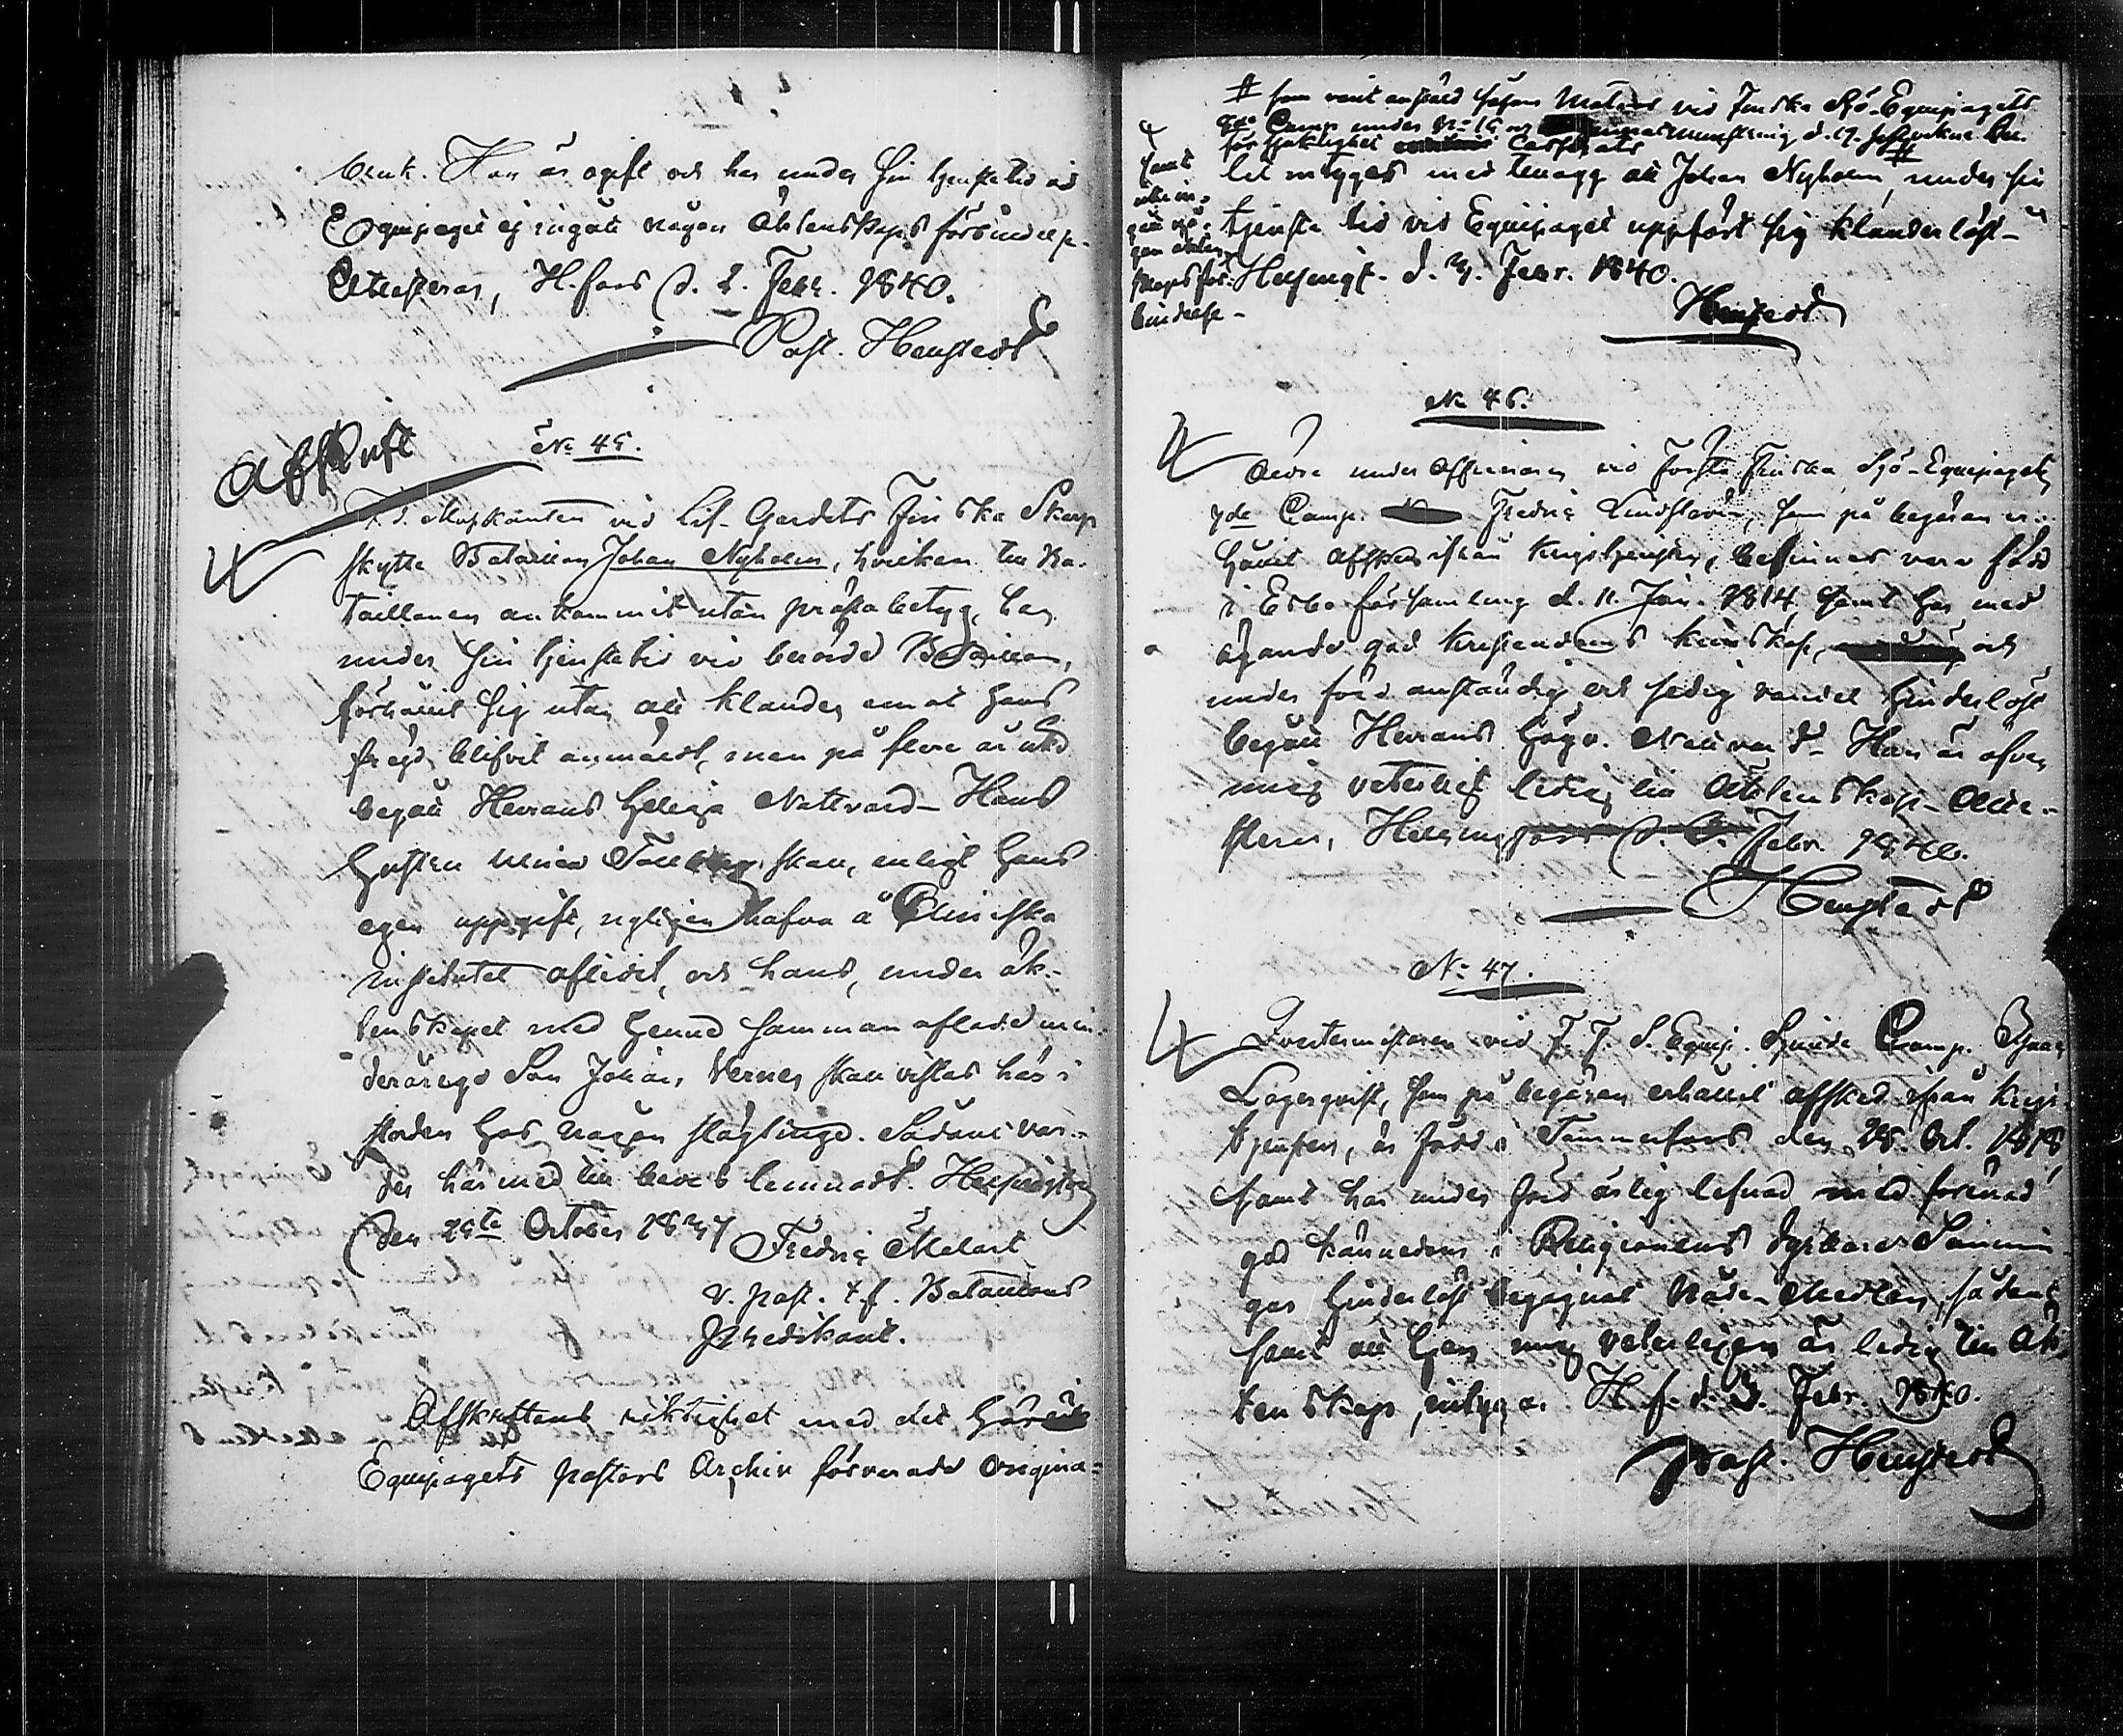 bruk. Han är ogift och har under sin tjenstetid vid
Equipaget ej ingått någon Äktenskaps förbindelse.
Attesteras, H.fors d. 2. Febr. 1840.
Past. Henstedt
Afskrift
No 45.
F. d. Musikanten vid Lif-Gardets Finska Skarp
skytte Bataillon Johan Nyholm, hvilken till Ba-
taillonen ankommit utan prästabetyg, har
under sin tjenstetid vid berörde Bataillon,
förhållit sig utan att klander emot hans
frägd blifvit anmärkt, men på flere år icke
begått Herrans Heliga Nattvard – Hans
Hustru Ulrica skall, enligt hans
egen uppgift, nyligen hafva å Cliniska
institutet aflidit, och hans, under äk-
tenskapet med henne sammanaflade min-
derårige Son Johan Verner skall vistas här i
staden hos någon slägtinge. Sådant var-
der härmed till bevis lemnadt. Helsingfors
den 25te October 1837
Fredric Melart
v. past. t.f. Bataillons
Predikant.
Afskriftens riktighet med det
Equipagets pastors Archiv förvarade origina-
# som varit anstäld såsom Matros vid Finska Sjö-Equipagets
Comp. under No mönstring d.
för sjuklighet Casserats
let intyges med tillägg att Johan Nyholm, # under sin
tjenste tid vid Equipaget uppfört sig klanderlöst –
Helsingf. d. Febr. 1840.
Henstedt
samt
icke in-
gått nå-
gon äkten-
skaps för-
bindelse –
No 46.
Äldre under Officeraren vid Första Finska Sjö-Equipagets
7de Comp. Fredric, som på begäran er-
hållit Afsked ifrån Krigstjensten, befinnes vara född
i Esbo församling d. 11. Jan. 1814, samt har med
ägande god kristendoms kunskap, och
under förd anständig och sedig vandel hinderlöst
begått Herrans Högv. Nattvard – Han är äfven
mig veterligt ledig till Äktenskap – Atte-
steras, Helsingfors d. Febr. 1840.
Henstedt
No 47.
Qvartermästaren vid F. F. S. Equip. Sjunde Comp.
Lagerqvist, som på begäran erhållit afsked ifrån Krigs-
tjensten, är född i Tammerfors den 28. Oct. 1818
samt har under förd ärlig lefnad med förenad
god kännedom i Religionens dyrbara Sannin-
gar hinderlöst begagnat Nåde-Medlen, sådant
samt att han mig veterligen är ledig till Äk-
tenskap, intygar. H.f. d. 3. Febr. 1840.
Past. Henstedt